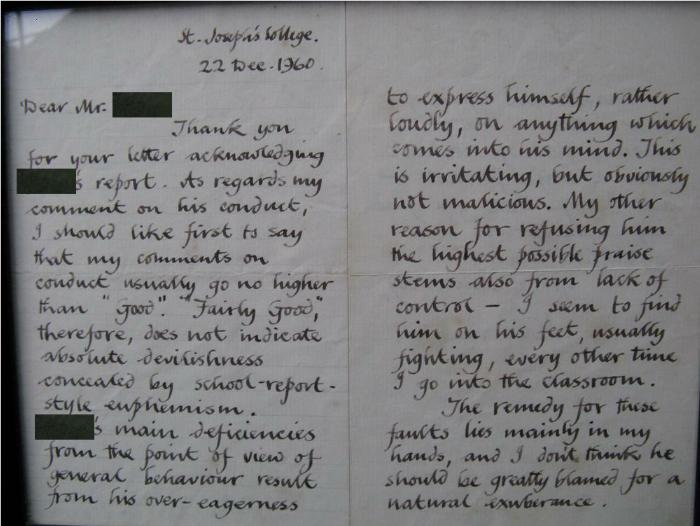 St. Joseph's College.
22 Dec. 1960.
Dear Mr.
Thank you
for your letter acknowledging
's report. As regards my
comment on his conduct,
I should like first to say
that my comments on
conduct usually go no higher
than "Good". "Fairly Good",
therefore, does not indicate
absolute devilishness
concealed by school-report-
style euphemism.
's main deficiencies
from the point of view of
general behaviour result
from his over-eagerness
to express himself, rather
loudly, on anything which
comes into his mind. This
is irritating, but obviously
not malicious. My other
reason for refusing him
the highest possible praise
stems also from lack of
control – I seem to find
him on his feet, usually
fighting, every other time
I go into the classroom.
The remedy for these
faults lies mainly in my
hands, and I don't think he
should be greatly blamed for a
natural exuberance.